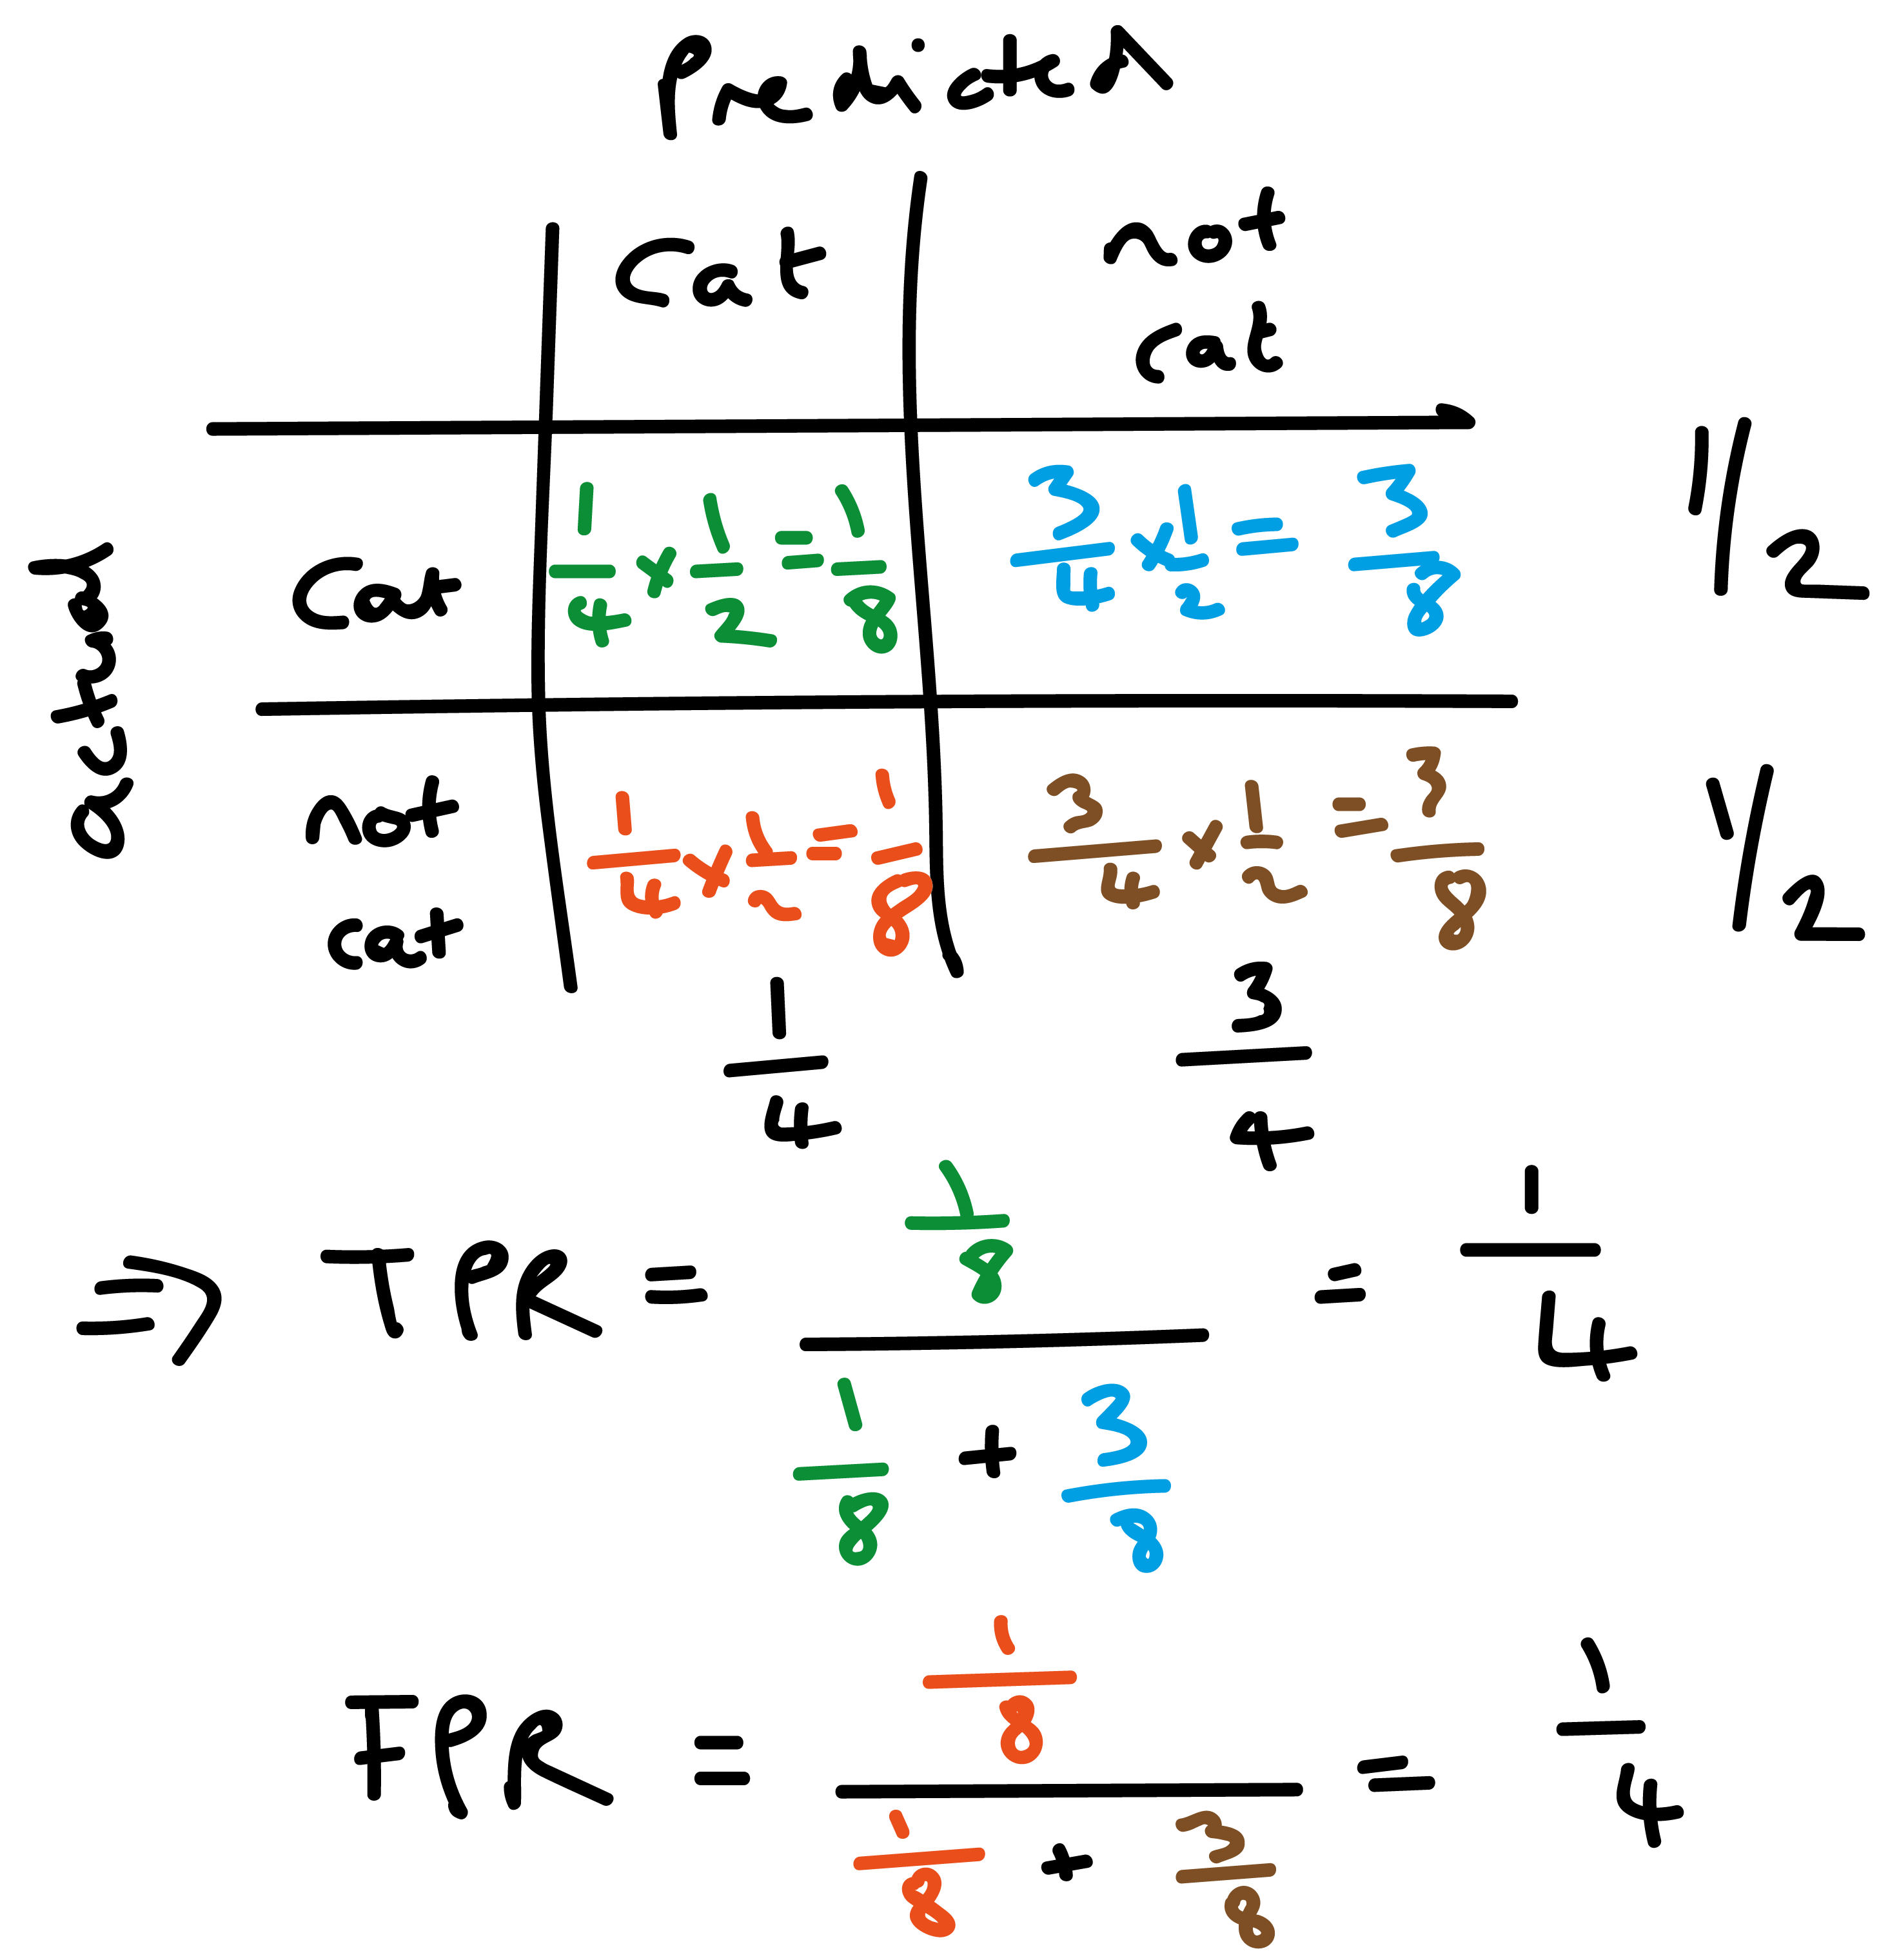 Predicted
cat not cat
actual
cat 1/4 × 1/2 = 1/8 3/4 × 1/2 = 3/8 1/2
not cat 1/4 × 1/2 = 1/8 3/4 × 1/2 = 3/8 1/2
1/4 3/4
⇒ TPR = 1/8 / (1/8 + 3/8) = 1/4
FPR = 1/8 / (1/8 + 3/8) = 1/4